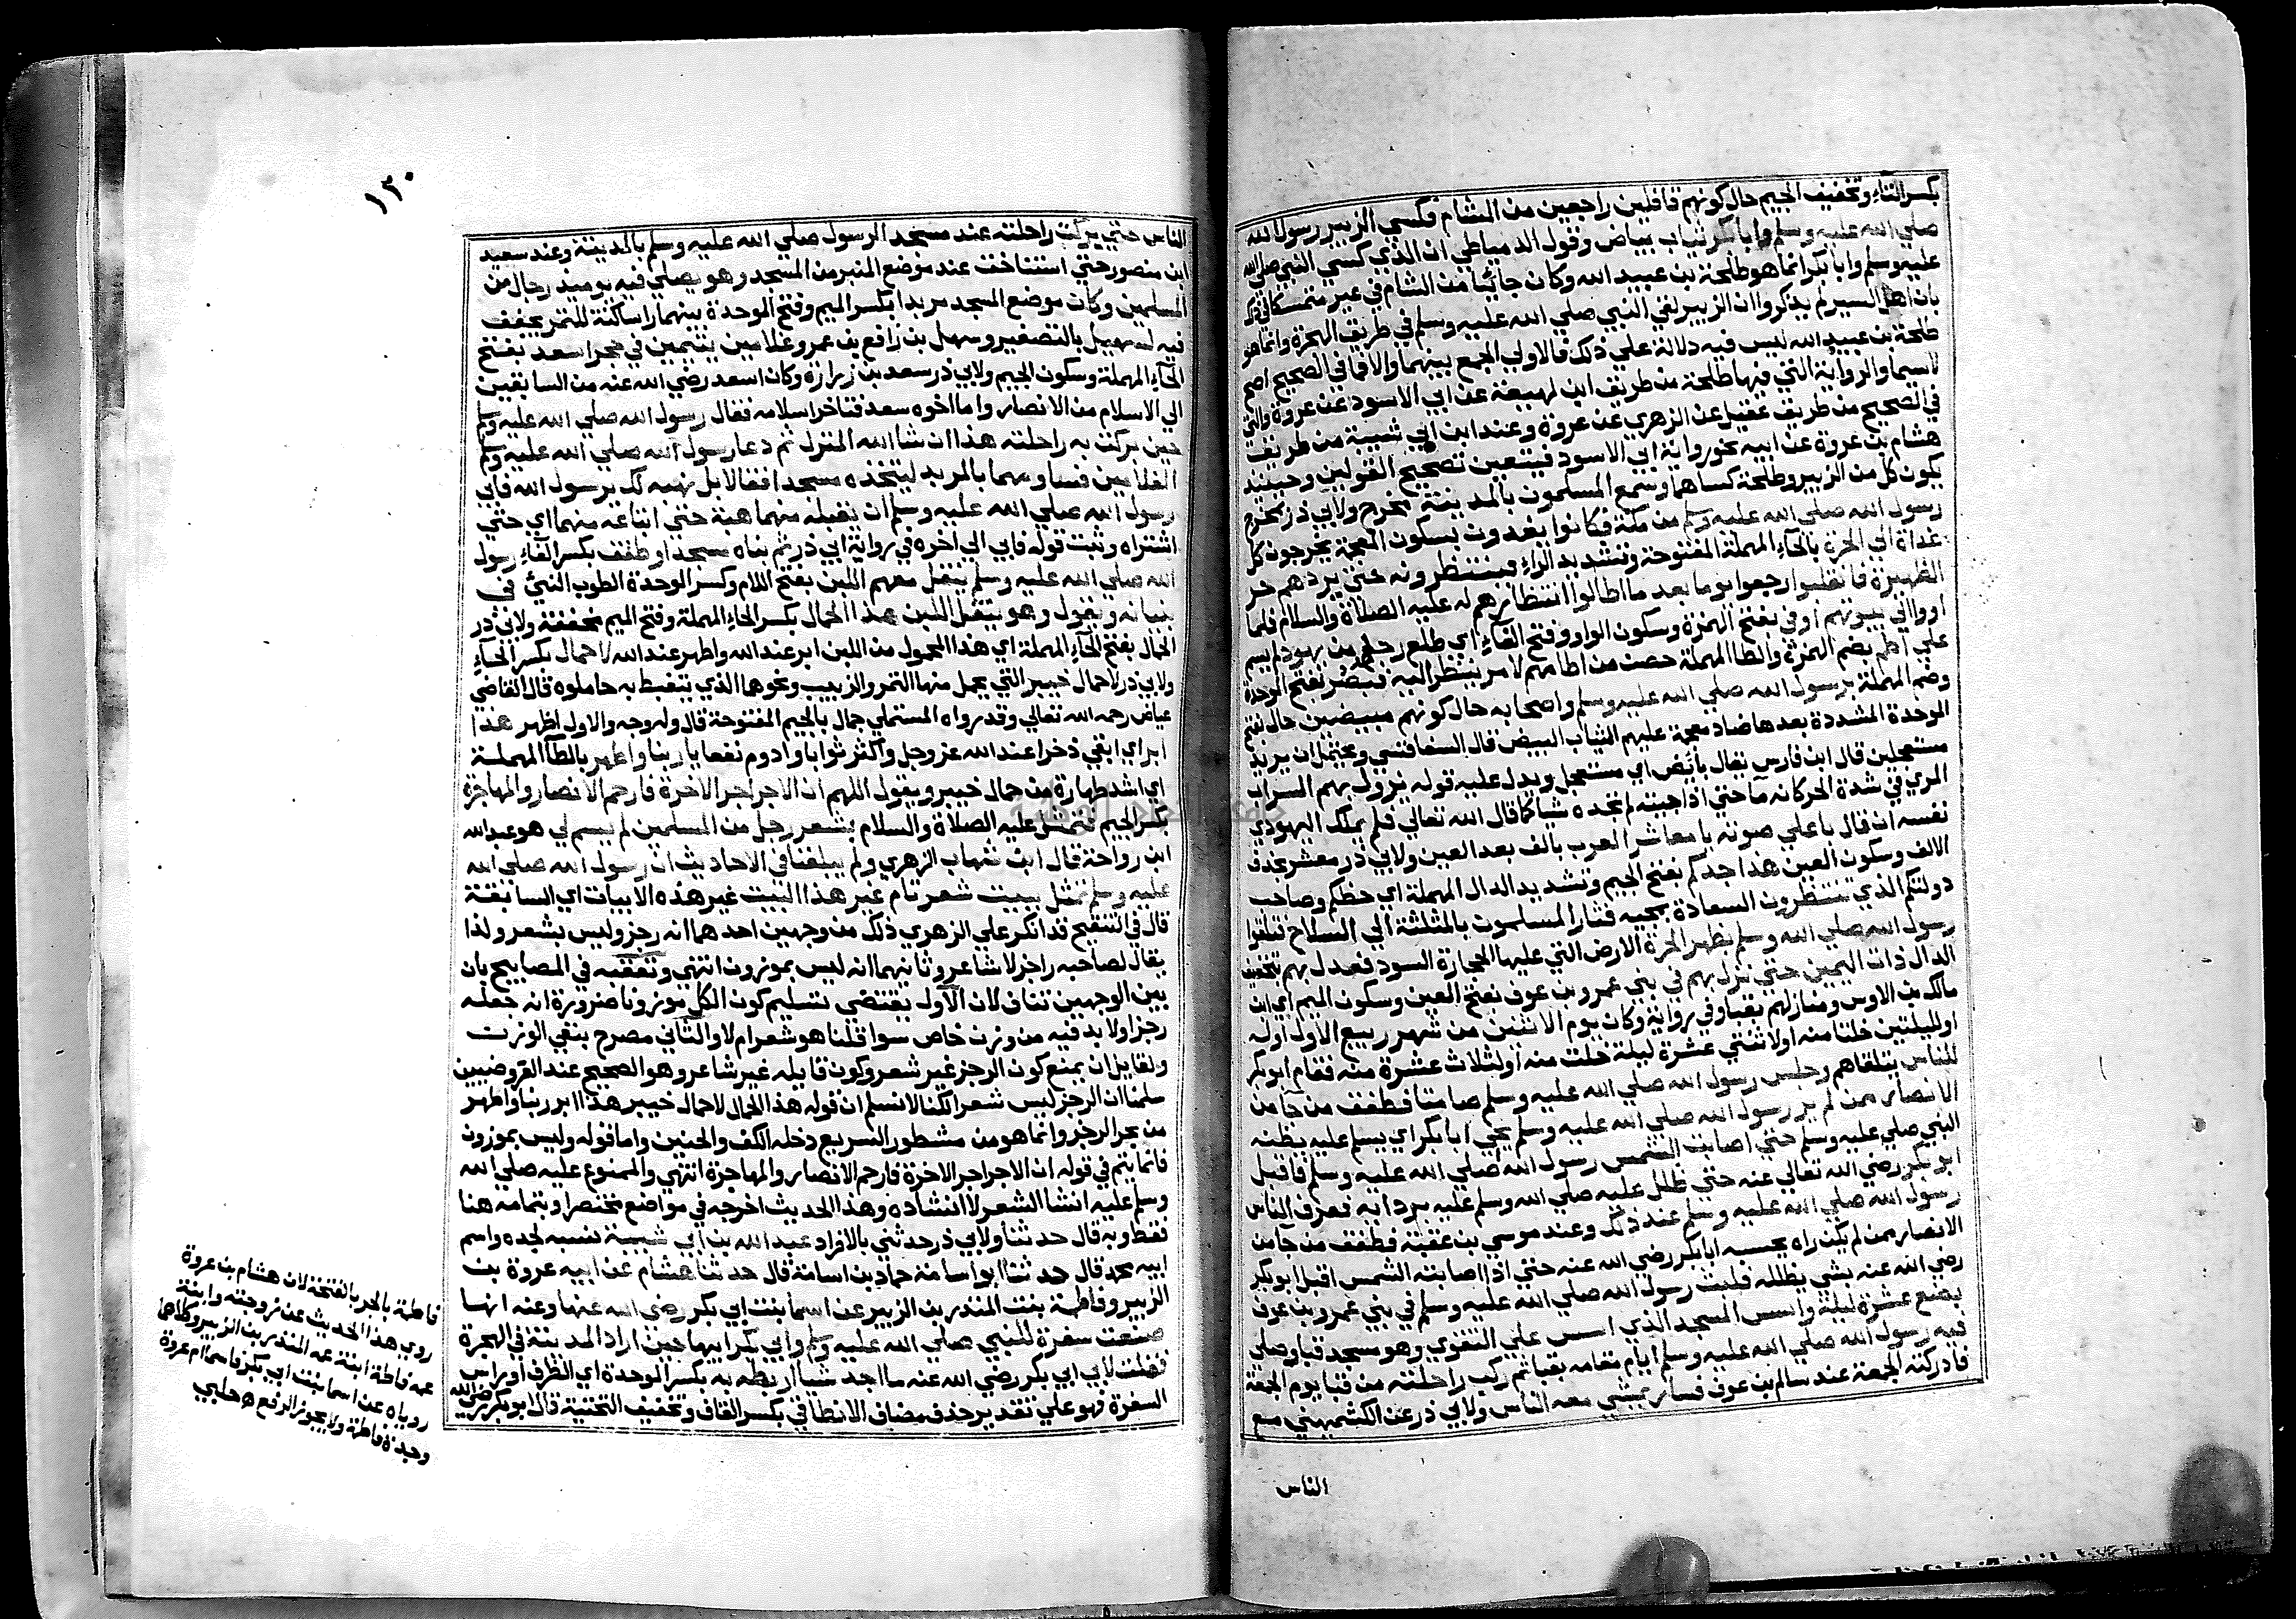 بكسر التاء وتخفيف الجيم حال كونهم قافلين راجعين من الشام فكسي الزبير رسول الله
صلي الله عليه وسلم وابا بكر ثياب بياض وقول الدمياطي ان الذي كسي النبي صلي الله
عليه وسلم وابا بكر انما هو طلحة بن عبيد الله وكان جائيا من الشام في عير متمسكا في ذلك
بان اهل السير لم يذكروا ان الزبير لقي النبي صلي الله عليه وسلم في طريق الهجرة وانما هو
طلحة بن عبيد الله ليس فيه دلالة علي ذلك فالاولي الجمع بينهما والا فما في الصحيح اصح
لاسيما والرواية التي فيها طلحة من طريق ابن لهيعة عن ابي الاسود عن عروة والتي
في الصحيح من طريق عقيل عن الزهري عن عروة وعند ابن ابي شيبة من طريق
هشام بن عروة عن ابيه نحو رواية ابي الاسود فيتعين تصحيح القولين وحينئذ
يكون كل من الزبير وطلحة كساهما وسمع المسلمون بالمدينة مخرج ولابي ذر بمخرج
رسول الله صلي الله عليه وسلم من مكة فكانوا يغدون بسكون المعجمة يخرجون كل
غداة الي الحرة بالحاء المهملة المفتوحة وتشديد الراء فينتظرونه حتي يردهم حر
الظهيرة فانقلبوا رجعوا يوما بعد ما اطالوا انتظارهم له عليه الصلاة والسلام فلما
اووا الي بيوتهم اوفي بفتح الهمزة وسكون الواو وفتح الفاء اي طلع رجل من يهود لم يسم
علي اطم بضم الهمزة والطا المهملة حصن من اطامهم لامر ينظر اليه فبصر بفتح الموحدة
وضم المهملة برسول الله صلي الله عليه وسلم واصحابه حال كونهم مبيضين حال بفتح
الموحدة المشددة بعدها ضاد معجمة عليهم الثياب البيض قال السفاقسي ويحتمل ان يريد
مستعجلين قال ابن فارس يقال بائض اي مستعجل ويدل عليه قوله يزول بهم السراب
المري في شدة الحر كانه ما حتي اذا جيته لم تجده شيا كما قال الله تعالي فلم يملك اليهودي
نفسه ان قال باعلي صوته يا معاشر العرب بالف بعد العين ولابي ذر معشر بحذف
الالف وسكون العين هذا جدكم بفتح الجيم وتشديد الدال المهملة اي حظكم وصاحب
دولتكم الذي تنتظرون السعادة بمجيه فثار المسلمون بالمثلثة الي السلاح فتلقوا
رسول الله صلي الله وسلم بظهر الحرة الارض التي عليها الحجارة السود فعدل بهم بتخفيف
الدال ذات اليمين حتي نزل بهم في بني عمرو بن عوف بفتح العين وسكون الميم اي ابن
مالك بن الاوس ومنازلهم بقبا وفي رواية وكان يوم الاثنين من شهر ربيع الاول اوله
او لليلتين خلتا منه او لاثنتي عشرة ليلة خلت منه او لثلاث عشرة منه فقام ابو بكر
للناس يتلقاهم وجلس رسول الله صلي الله عليه وسلم صامتا فطفق من جا من
الانصار ممن لم ير رسول الله صلي الله عليه وسلم يحي ابا بكر اي يسلم عليه يظنه
النبي صلي عليه وسلم حتي اصابت الشمس رسول الله صلي الله عليه وسلم فاقبل
ابو بكر رضي الله تعالي عنه حتي ظلل عليه صلي الله وسلم عليه بردايه فعرف الناس
رسول الله صلي الله عليه وسلم عند ذلك وعند موسي بن عقبة فطفق من جا من
الانصار ممن لم يكن راه يحسبه ابا بكر رضي الله عنه حتي اذا اصابته الشمس اقبل ابو بكر
رضي الله عنه بشي يظلله فلبث رسول الله صلي الله عليه وسلم في بني عمرو بن عوف
بضع عشرة ليلة واسس المسجد الذي اسس علي التقوي وهو مسجد قبا وصلي
فيه رسول الله صلي الله عليه وسلم ايام مقامه بقبا ثم ركب راحلته من قبا يوم الجمعة
فادركته الجمعة عند سالم بن عوف فسار يمشي معه الناس ولابي ذر عن الكشميهني مع
الناس
١٣٠
الناس حتي بركت راحلته عند مسجد الرسول صلي الله عليه وسلم بالمدينة وعند سعيد
ابن منصور حتي استناخت عند موضع المنبر من المسجد وهو يصلي فيه يوميذ رجال من
المسلمين وكان موضع المسجد مربدا بكسر الميم وفتح الموحدة بينهما را ساكنة للتمر يجفف
فيه لسهيل بالتصغير وسهل بن رافع بن عمرو غلامين يتيمين في حجر اسعد بفتح
الحاء المهملة وسكون الجيم ولابي ذر سعد بن زرارة وكان اسعد رضي الله عنه من السابقين
الي الاسلام من الانصار واما اخوه سعد فتاخر اسلامه فقال رسول الله صلي الله عليه وسلم
حين بركت به راحلته هذا ان شا الله المنزل ثم دعا رسول الله صلي الله عليه وسلم
الغلامين فساومهما بالمربد ليتخذه مسجدا فقالا بل نهبه لك يرسول الله فابي
رسول الله صلي الله عليه وسلم ان يقبله منهما هبة حتي ابتاعه منهما اي حتي
اشتراه وثبت قوله فابي الي اخره في رواية ابي ذر ثم بناه مسجدا وطفق بكسر الفاء رسول
الله صلي الله عليه وسلم ينقل معهم اللبن بفتح اللام وكسر الموحدة الطوب النيئ في
بنيانه ويقول وهو ينقل اللبن هذا الحمال بكسر الحاء المهملة وفتح الميم مخففة ولابي ذر
الحمال بفتح الحاء المهملة اي هذا المحمول من اللبن ابر عند الله واطهر عند الله لا حمال بكسر الحاء
ولابي ذر لا حمال خيبر التي يحمل منها التمر والزبيب ونحوها الذي يتغبط به حاملوه قال القاضي
عياض رحمه الله تعالي وقد رواه المستملي جمال بالجيم المفتوحة قال وله وجه والاول اظهر هذا
ابر اي ابقي ذخرا عند الله عز وجل واكثر ثوابا وادوم نفعا يا ربنا واطهر بالطآ المهملة
اي اشد طهارة من حمال خيبر ويقول اللهم ان الاجر اجر الاخرة فارحم الانصار والمهاجرة
بكسر الجيم فتمثل عليه الصلاة والسلام بشعر رجل من المسلمين لم يسم لي هو عبد الله
ابن رواحة قال ابن شهاب الزهري ولم يبلغنا في الاحاديث ان رسول الله صلي الله
عليه وسلم تمثل ببيت شعر تام غير هذا البيت غير هذه الابيات اي السابقة
قال في التنقيح قد انكر علي الزهري ذلك من وجهين احدهما انه رجز وليس بشعر ولذا
يقال لصاحبه راجز لا شاعر وثانيهما انه ليس بموزون انتهي وتعقبه في المصابيح بان
بين الوجهين تناف لان الاول يقتضي بتسليم كون الكل موزونا ضرورة انه جعله
رجزا ولا بد فيه من وزن خاص سوا قلنا هو شعر ام لا والثاني مصرح بنفي الوزن
ولقايل ان يمنع كون الرجز غير شعر وكون قايله غير شاعر وهو الصحيح عند العروضيين
سلمنا ان الرجز ليس شعرا لكنا لا نسلم ان قوله هذا الحمال لا حمال خيبر هذا ابر ربنا واطهر
من بحر الرجز وانما هو من مشطور السريع دخله الكف والخبن واما قوله وليس بموزون
فانما يتم في قوله ان الاجر اجر الاخرة فارحم الانصار والمهاجرة انتهي والممنوع عليه صلي الله
وسلم عليه انشا الشعر لا انشاده وهذا الحديث اخرجه في مواضع مختصرا وبتمامه هنا
فقط وبه قال حدثنا ولابي ذر حدثني بالافراد عبد الله بن ابي شيبة نسبه لجده واسم
ابيه محمد قال حدثنا ابو اسامة حماد بن اسامة قال حدثنا هشام عن ابيه عروة بن
الزبير وفاطمة بنت المنذر بن الزبير عن اسما بنت ابي بكر رضي الله عنها وعنه انها
صنعت سفرة للنبي صلي الله عليه وسلم وابي بكر ابيها حين اراد المدينة في الهجرة
فقلت لابي ابي بكر رضي الله عنه ما اجد شيا اربطه به بكسر الموحدة اي الظرف او راس
السفرة فهو علي تقدير حذف مضاف الا نطاقي بكسر القاف وتخفيف التحتية قال ابو بكر رضي الله
فاطمة بالجر بالفتحة لان هشام بن عروة
روي هذا الحديث عن زوجته وابنة
عمه فاطمة ابنة عمه المنذر بن الزبير وكلاهما
روياه عن اسما بنت ابي بكر فاسما ام عروة
وجدة فاطمة ولا يجوز الرفع ه حلبي